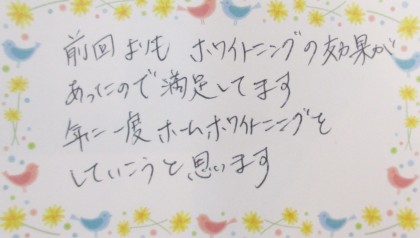 前回よりも ホワイトニングの効果が
あったので満足してます
年に一度ホームホワイトニングを
していこうと思います